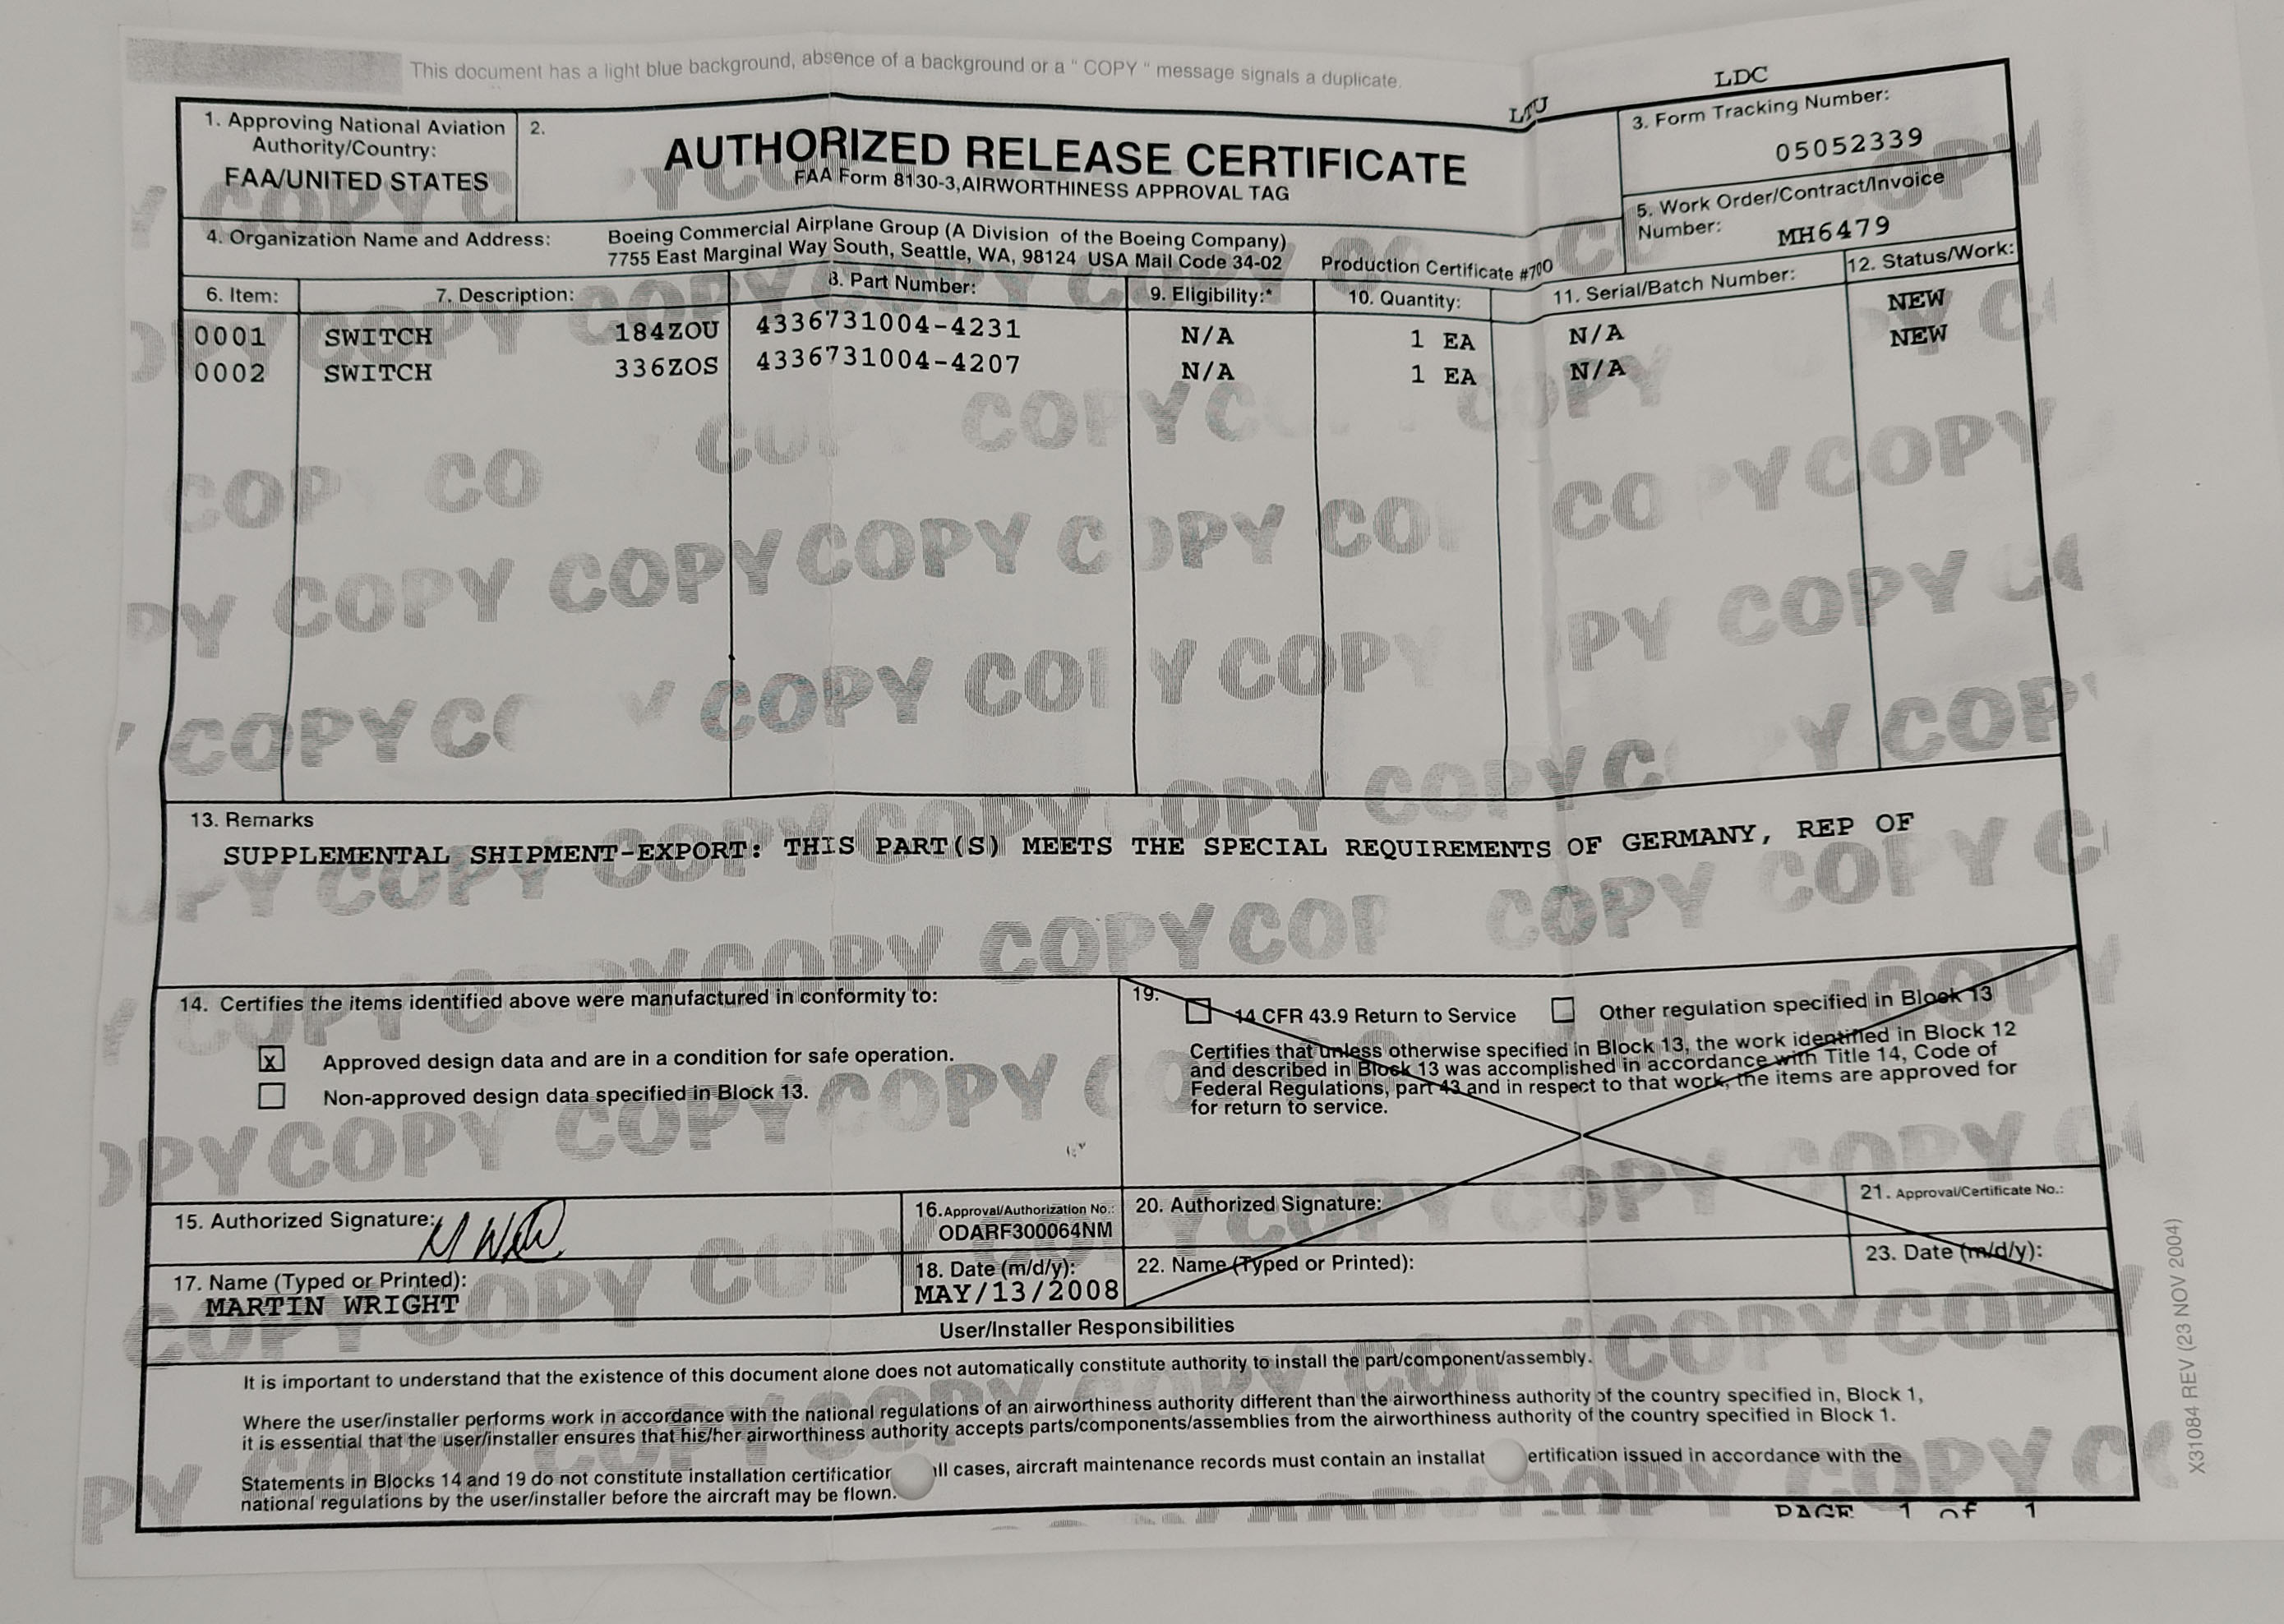 This document has a light blue background, absence of a background or a " COPY " message signals a duplicate.
LTU
LDC
1. Approving National Aviation Authority/Country:
FAA/UNITED STATES
2.
AUTHORIZED RELEASE CERTIFICATE
FAA Form 8130-3,AIRWORTHINESS APPROVAL TAG
3. Form Tracking Number:
05052339
4. Organization Name and Address:
Boeing Commercial Airplane Group (A Division of the Boeing Company)
7755 East Marginal Way South, Seattle, WA, 98124 USA Mail Code 34-02 Production Certificate #700
5. Work Order/Contract/Invoice
Number: MH6479
6. Item: 7. Description: 8. Part Number: 9. Eligibility:* 10. Quantity: 11. Serial/Batch Number: 12. Status/Work:
0001 SWITCH 184ZOU 4336731004-4231 N/A 1 EA N/A NEW
0002 SWITCH 336ZOS 4336731004-4207 N/A 1 EA N/A NEW
13. Remarks
SUPPLEMENTAL SHIPMENT-EXPORT: THIS PART(S) MEETS THE SPECIAL REQUIREMENTS OF GERMANY, REP OF
14. Certifies the items identified above were manufactured in conformity to:
x Approved design data and are in a condition for safe operation.
Non-approved design data specified in Block 13.
19.
14 CFR 43.9 Return to Service Other regulation specified in Block 13
Certifies that unless otherwise specified in Block 13, the work identified in Block 12
and described in Block 13 was accomplished in accordance with Title 14, Code of
Federal Regulations, part 43 and in respect to that work, the items are approved for
for return to service.
15. Authorized Signature:
16. Approval/Authorization No.:
ODARF300064NM
17. Name (Typed or Printed):
MARTIN WRIGHT
18. Date (m/d/y):
MAY/13/2008
20. Authorized Signature:
21. Approval/Certificate No.:
22. Name (Typed or Printed):
23. Date (m/d/y):
User/Installer Responsibilities
It is important to understand that the existence of this document alone does not automatically constitute authority to install the part/component/assembly.
Where the user/installer performs work in accordance with the national regulations of an airworthiness authority different than the airworthiness authority of the country specified in, Block 1,
it is essential that the user/installer ensures that his/her airworthiness authority accepts parts/components/assemblies from the airworthiness authority of the country specified in Block 1.
Statements in Blocks 14 and 19 do not constitute installation certification ll cases, aircraft maintenance records must contain an installat ertification issued in accordance with the
national regulations by the user/installer before the aircraft may be flown.
PAGE 1 of 1
X31084 REV (23 NOV 2004)
COPY